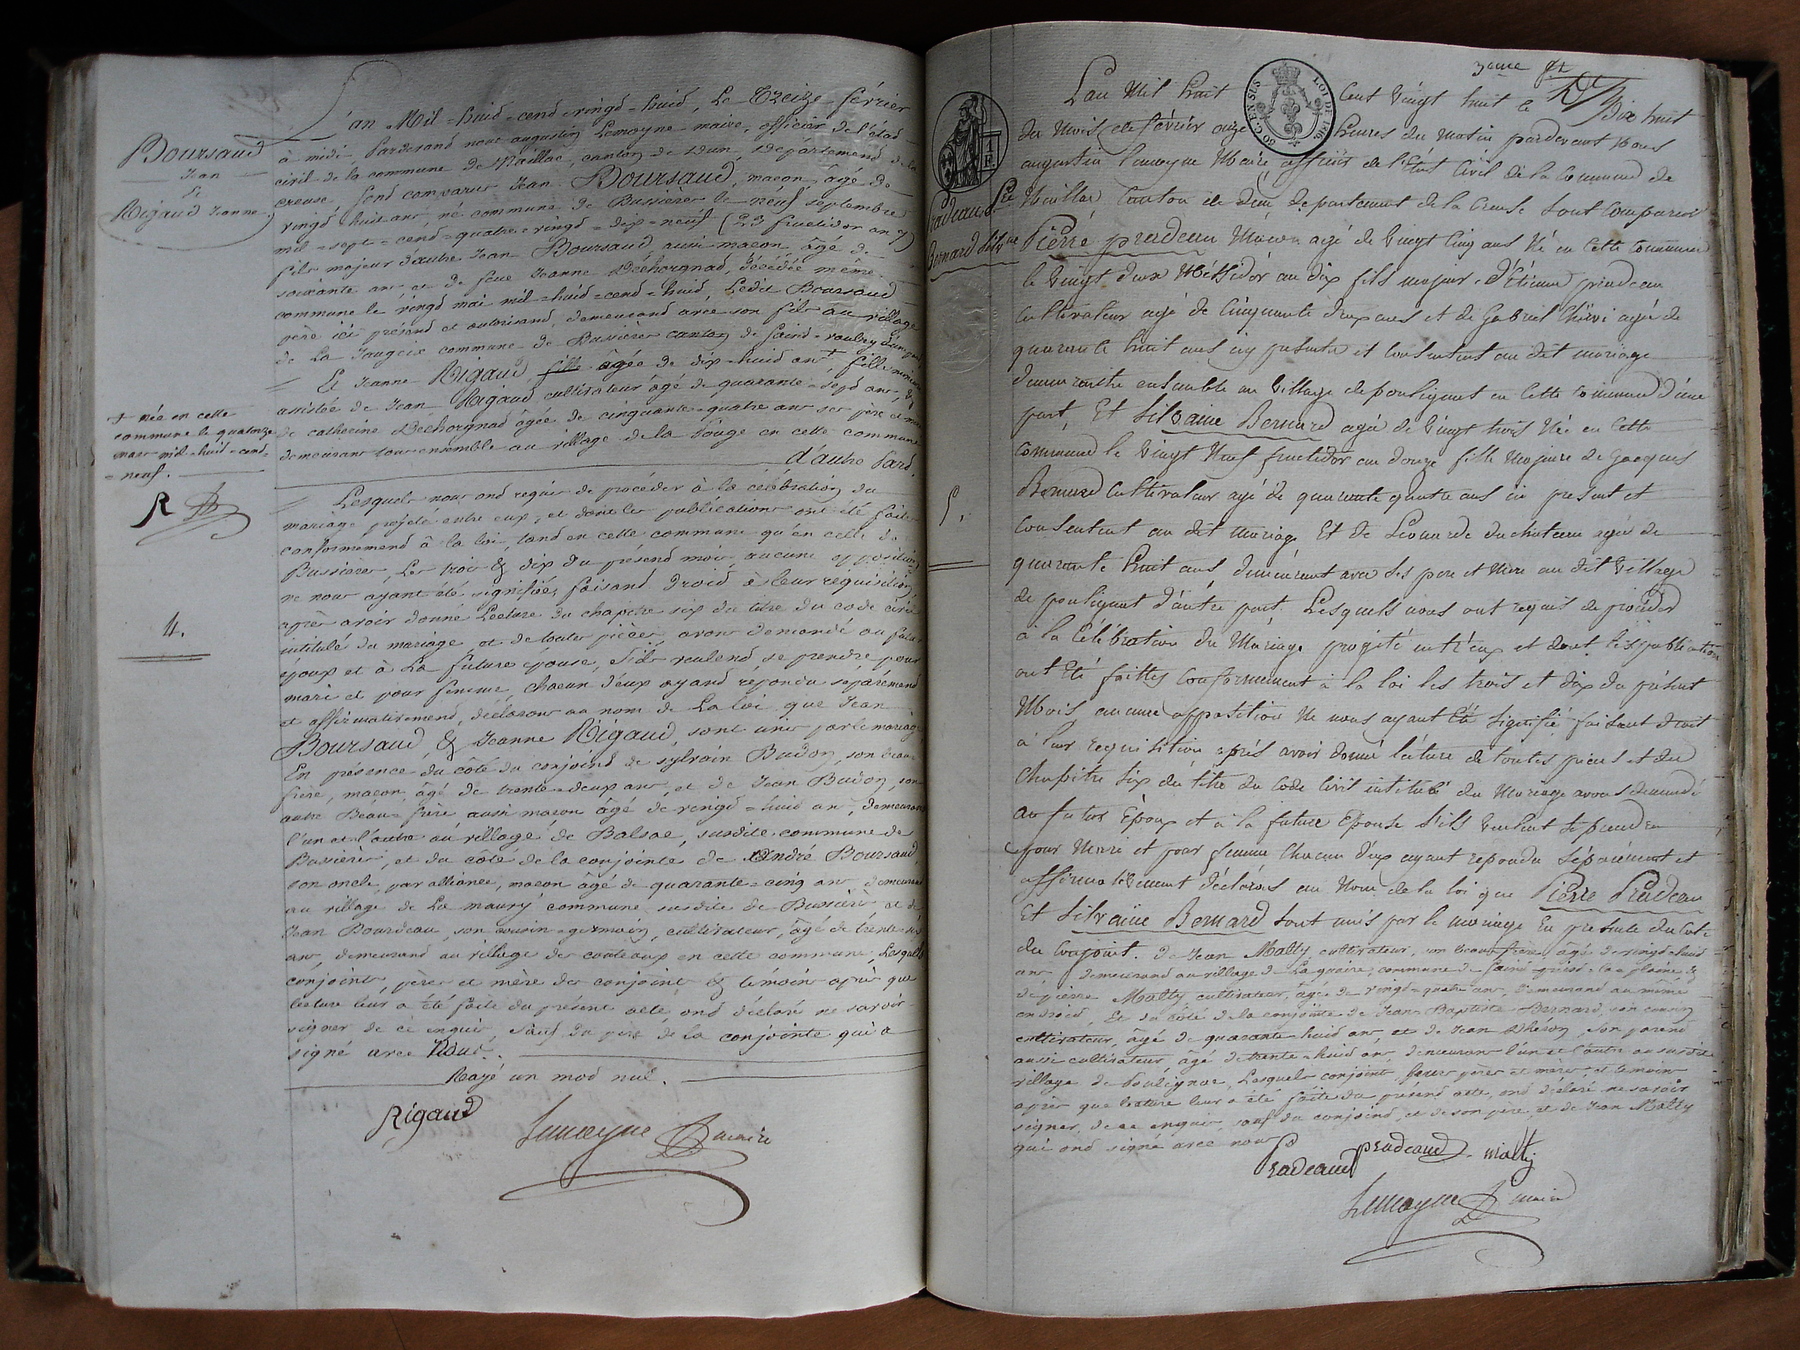 Boursaud
Jean
&
Rigaud Jeanne
L'an Mil-huid-cend-vingd-huid, Le Treize février
à midi, Pardevand nous augustin Lemoyne maire, officier de l'étad
civil de la commune de Maillac, canton de Dun, département de la
creuse, sond comparus Jean Boursaud, maçon, âgé de
vingd huid ans, né commune de Bussière le neuf septembre
mil-sept-cend-quatre-vingd-dix-neuf (23 fructidor an 7)
fils majeur d'autre Jean Boursaud aussi maçon, âgé de
soixante ans, et de feue Jeanne Déchorgnad, décédée même
commune le vingd mai mil-huid-cend-huid, Ledit Boursaud
père ici présend et autorisand, demeurand avec son fils au village
de La commune de Bussière canton de Saind-
Et Jeanne Rigaud, fille âgée de dix-huid ans +, fille mineure
assistée de Jean Rigaud cultivateur âgé de quarante-sepd ans, &
de catherine Déchorgnad âgée de cinquante-quatre ans ses père et mère
demeurans tous ensemble au village de la Vouge en cette commune
d'autre Pard.
+ née en cette
commune le quatorze
mars mil-huid-cend-
neuf.
R
Lesquels nous ond requis de procéder à la célébration du
mariage projeté entre eux, et dont les publications ont été faites
conformémend à la loi, tand en cette commune qu'en celle de
Bussières, Les trois & dix du présend mois, aucune opposition
ne nous ayant été signifiée, faisand Droid à leur requisition,
après avoir donné Lecture du chapitre six du titre du code civil
intitulé du mariage et de toutes pièces, avons demandé au futur
époux et à La future épouse, S'ils veulend se prendre pour
mari et pour femme, chacun d'eux ayand répondu séparémend
et affirmativemend, déclarons au nom de La loi que Jean
Boursaud & Jeanne Rigaud, sont unis par le mariage
En présence du côté du conjoind de sylvain Budon, son beau-
frère, maçon, âgé de trente-deux ans, et de Jean Budon, son
autre Beau-frère aussi maçon âgé de vingd-huid ans, demeurans
l'un et l'autre au village de Balsac, susdite commune de
Bussières, et du côté de la conjointe de André Boursaud
son oncle, par alliance, maçon âgé de quarante-cinq ans demeurand
au village de La maury commune susdite de Bussière et de
Jean Bourdeau, son cousin-germain, cultivateur, âgé de trente-
ans, demeurand au village des couteaux en cette commune, Lesquels
conjoints, pères et mère des conjoints & témoins après que
lecture leur a été faite du présend acte, ond déclaré ne savoir
signer de ce enquis, sauf du père de la conjointe qui a
signé avec Nous.
Rayé un mod nul.
Rigaud
Lemoyne maire
4.
3eme
L'an Mil huit Cent vingt huit le Dix huit
du Mois de février onze heures du Matin pardevant Nous
augustin lemoyne Maire, officier de l'État Civil de la Commune de
Maillac, Canton de Dun, département de la Creuse sont Comparus
Pradeau &
Bernard Silvaine
Pierre pradeau Macon agé de Vingt Cinq ans Né en Cette Commune
le Vingt deux Méssidor an dix fils majeur d'Étienne pradeau
Cultivateur agé de Cinquante deux ans et de Gabriel agée de
quarante huit ans icy présents et Consentent au dit mariage
demeurantes ensemble au Village de pouligant en Cette Commune d'une
part, Et Silvaine Bernard agée de Vingt trois Née en Cette
Commune le Vingt Neuf fructidor an douze fille Majeure de Jacques
Bernard Cultivateur agé de quarante quatre ans ici présent et
Consentent au dit mariage Et de Léonarde duchateau agée de
quarante huit ans, demeurant avec Ses pere et Mere au dit Village
de pouligant d'autre part, Lesquels nous ont requis de procéder
à la Célébration du Mariage progété entr'eux et dont les publications
ont Été faittes Conformement à la loi les trois et dix du présent
Mois aucune oppositiou Ne nous ayant Été signifié faisant droit
à leur requisition après avoir donné lecture de toutes pieces et du
Chapitre Six du titre du Code Civil intitulé du Mariage avons demandé
au futur Époux et à la future Épouse S'ils Veulent se prendre
pour Mari et pour femme Chacun d'eux ayant répondu Séparément et
affirmativement déclarons au Nom de la loi que Pierre Pradeau
Et Silvaine Bernard Sont unis par le mariage En présence du Coté
du Conjoint. de Jean Malty cultivateur, son beau-frère, âgé de vingd-huid
ans demeurand au village de La graire, commune de saind- la plaine, &
de pierre Malty cultivateur, âgé de vingd-quatre ans, demeurand au même
endroid, Et du côté de la conjointe de Jean-Baptiste Bernard, son cousin
cultivateur, âgé de quarante-huid ans, et de Jean son parend
aussi cultivateur, âgé de trente-huid ans, demeurans l'un et l'autre au susdit
village de Poulignac, Lesquels conjoints, leurs pères et mères, et témoins
après que lecture leur a été faite du présend acte, ond déclaré ne savoir
signer, de ce enquis, sauf du conjoind et de son père, et de Jean Malty
qui ond signé avec nous.
Pradeaud pradeaud malty
Lemoyne maire
5.
60 C. EN SUS
LOI DE 1816
1 F.